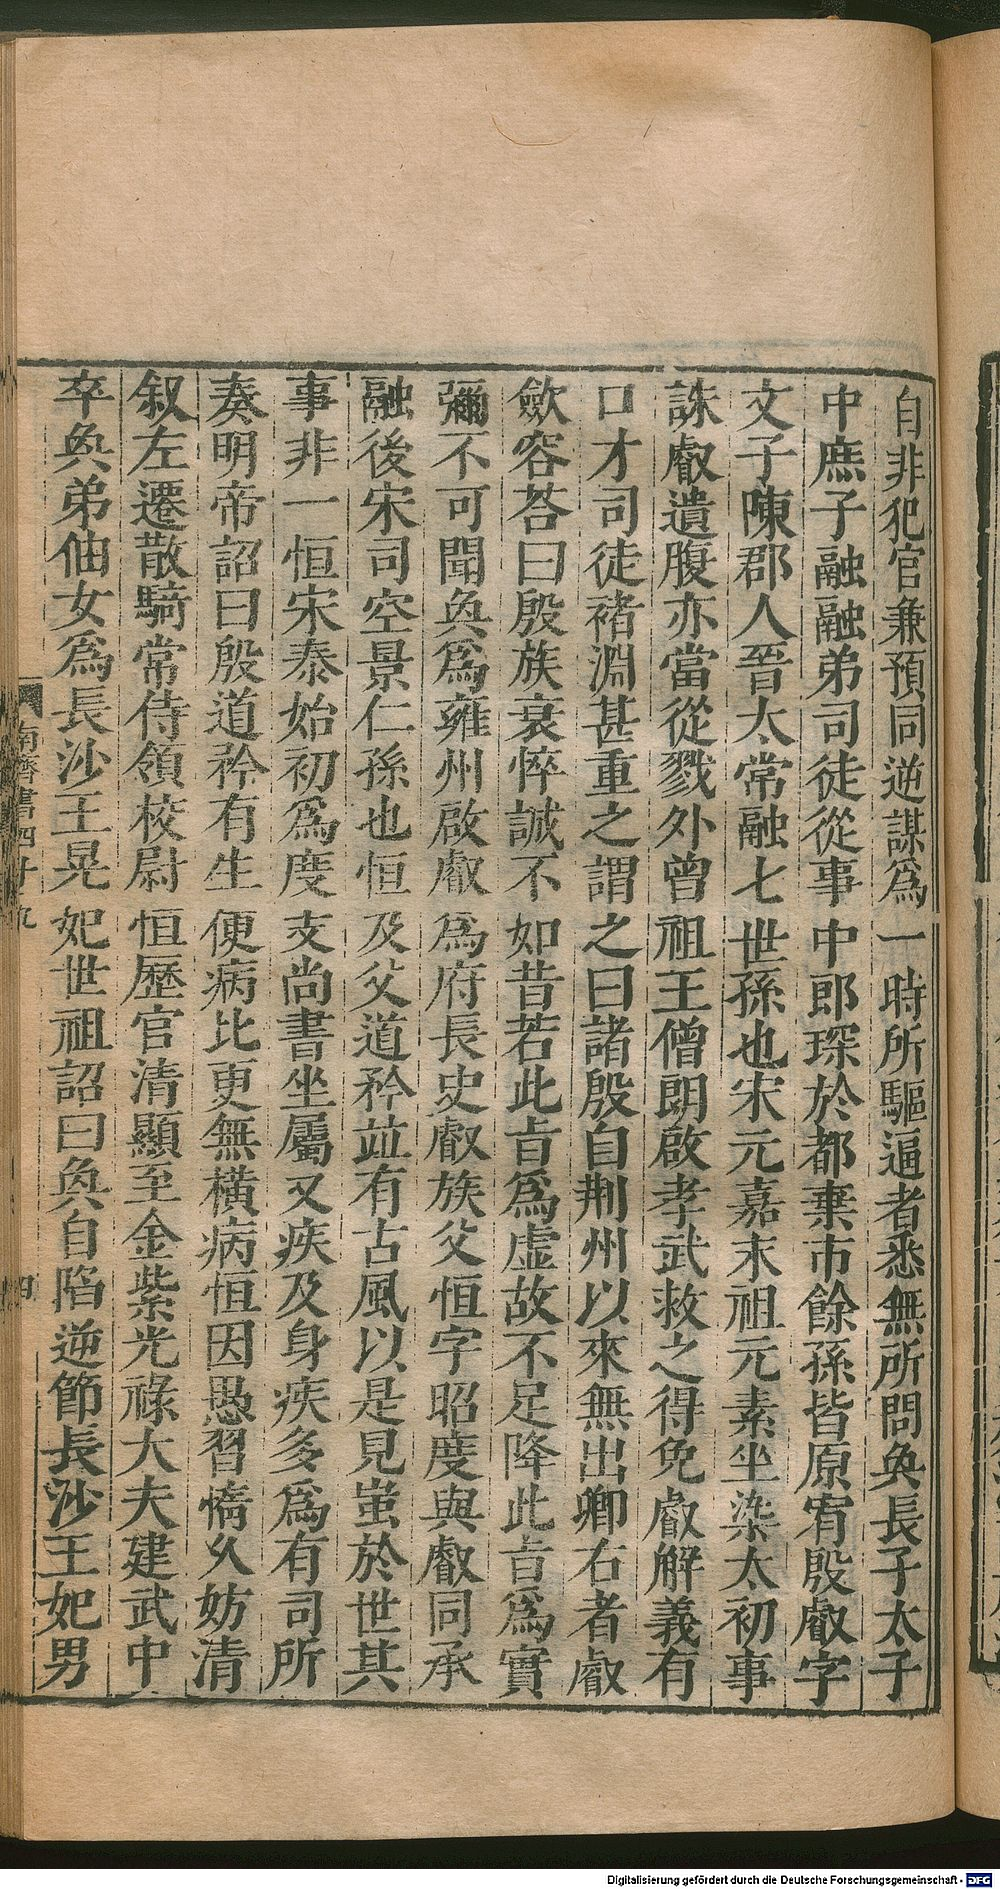 自非犯官兼預同逆謀爲一時所驅逼者悉無所問奐長子太子
中庶子融融弟司徒從事中郎琛於都棄市餘孫皆原宥殷叡字
文子陳郡人晉太常融七世孫也宋元嘉末祖元素坐染太初事
誅叡遺腹亦當從戮外曾祖王僧朗啟孝武救之得免叡解義有
口才司徒褚淵甚重之謂之曰諸殷自荆州以來無出卿右者叡
斂容荅曰殷族衰悴誠不如昔若此旨爲虛故不足降此旨爲實
彌不可聞奐爲雍州啟叡爲府長史叡族父恒字昭度與叡同承
融後宋司空景仁孫也恒及父道矜竝有古風以是見蚩於世其
事非一恒宋泰始初爲度支尚書坐屬父疾及身疾多爲有司所
奏明帝詔曰殷道矜有生便病比更無橫病恒因愚習惰久妨清
叙左遷散騎常侍領校尉恒歷官清顯至金紫光祿大夫建武中
卒奐弟伷女爲長沙王晃妃世祖詔曰奐自陷逆節長沙王妃男
南齊書四十九
四
Digitalisierung gefördert durch die Deutsche Forschungsgemeinschaft - DFG